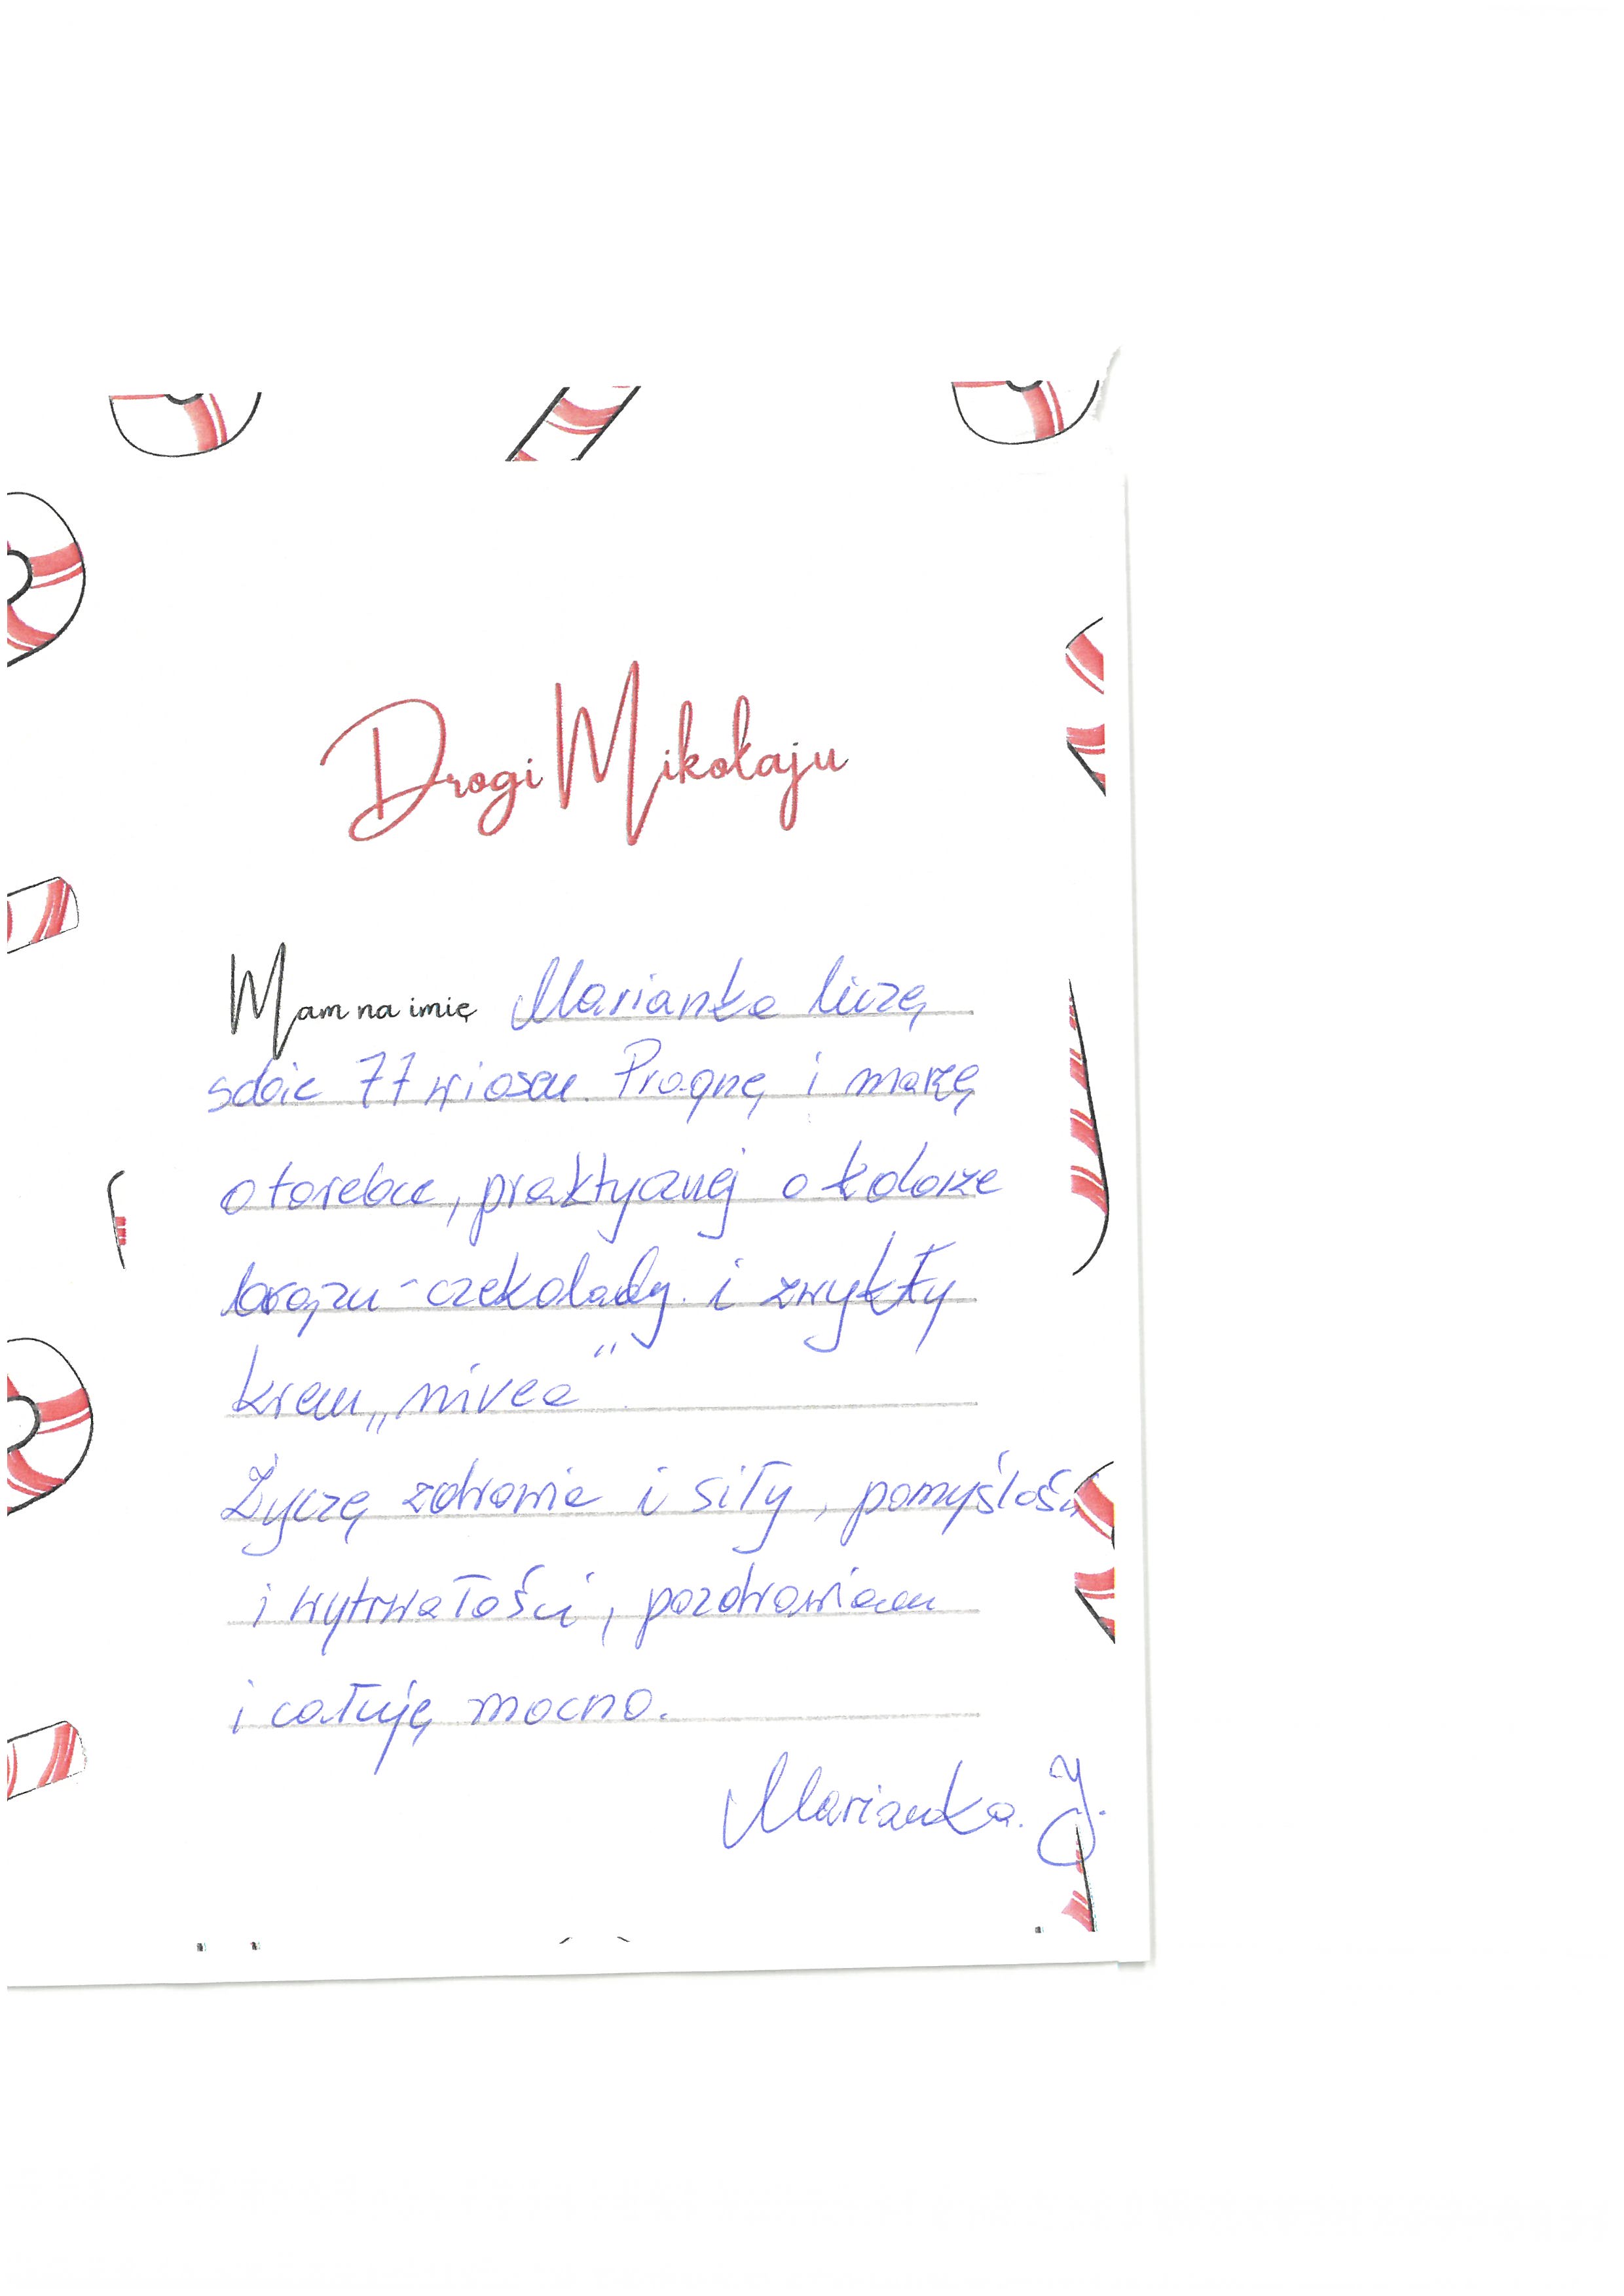 Drogi Mikołaju
Mam na imię Marianka liczę
sobie 77 wiosen. Pragnę i marzę
o torebce, praktycznej o kolorze
brązu-czekolady i zwykły
krem „nivea"
Życzę zdrowia i siły, pomyślości
i wytrwałości, pozdrawiam
i całuję mocno.
Marianka. J.